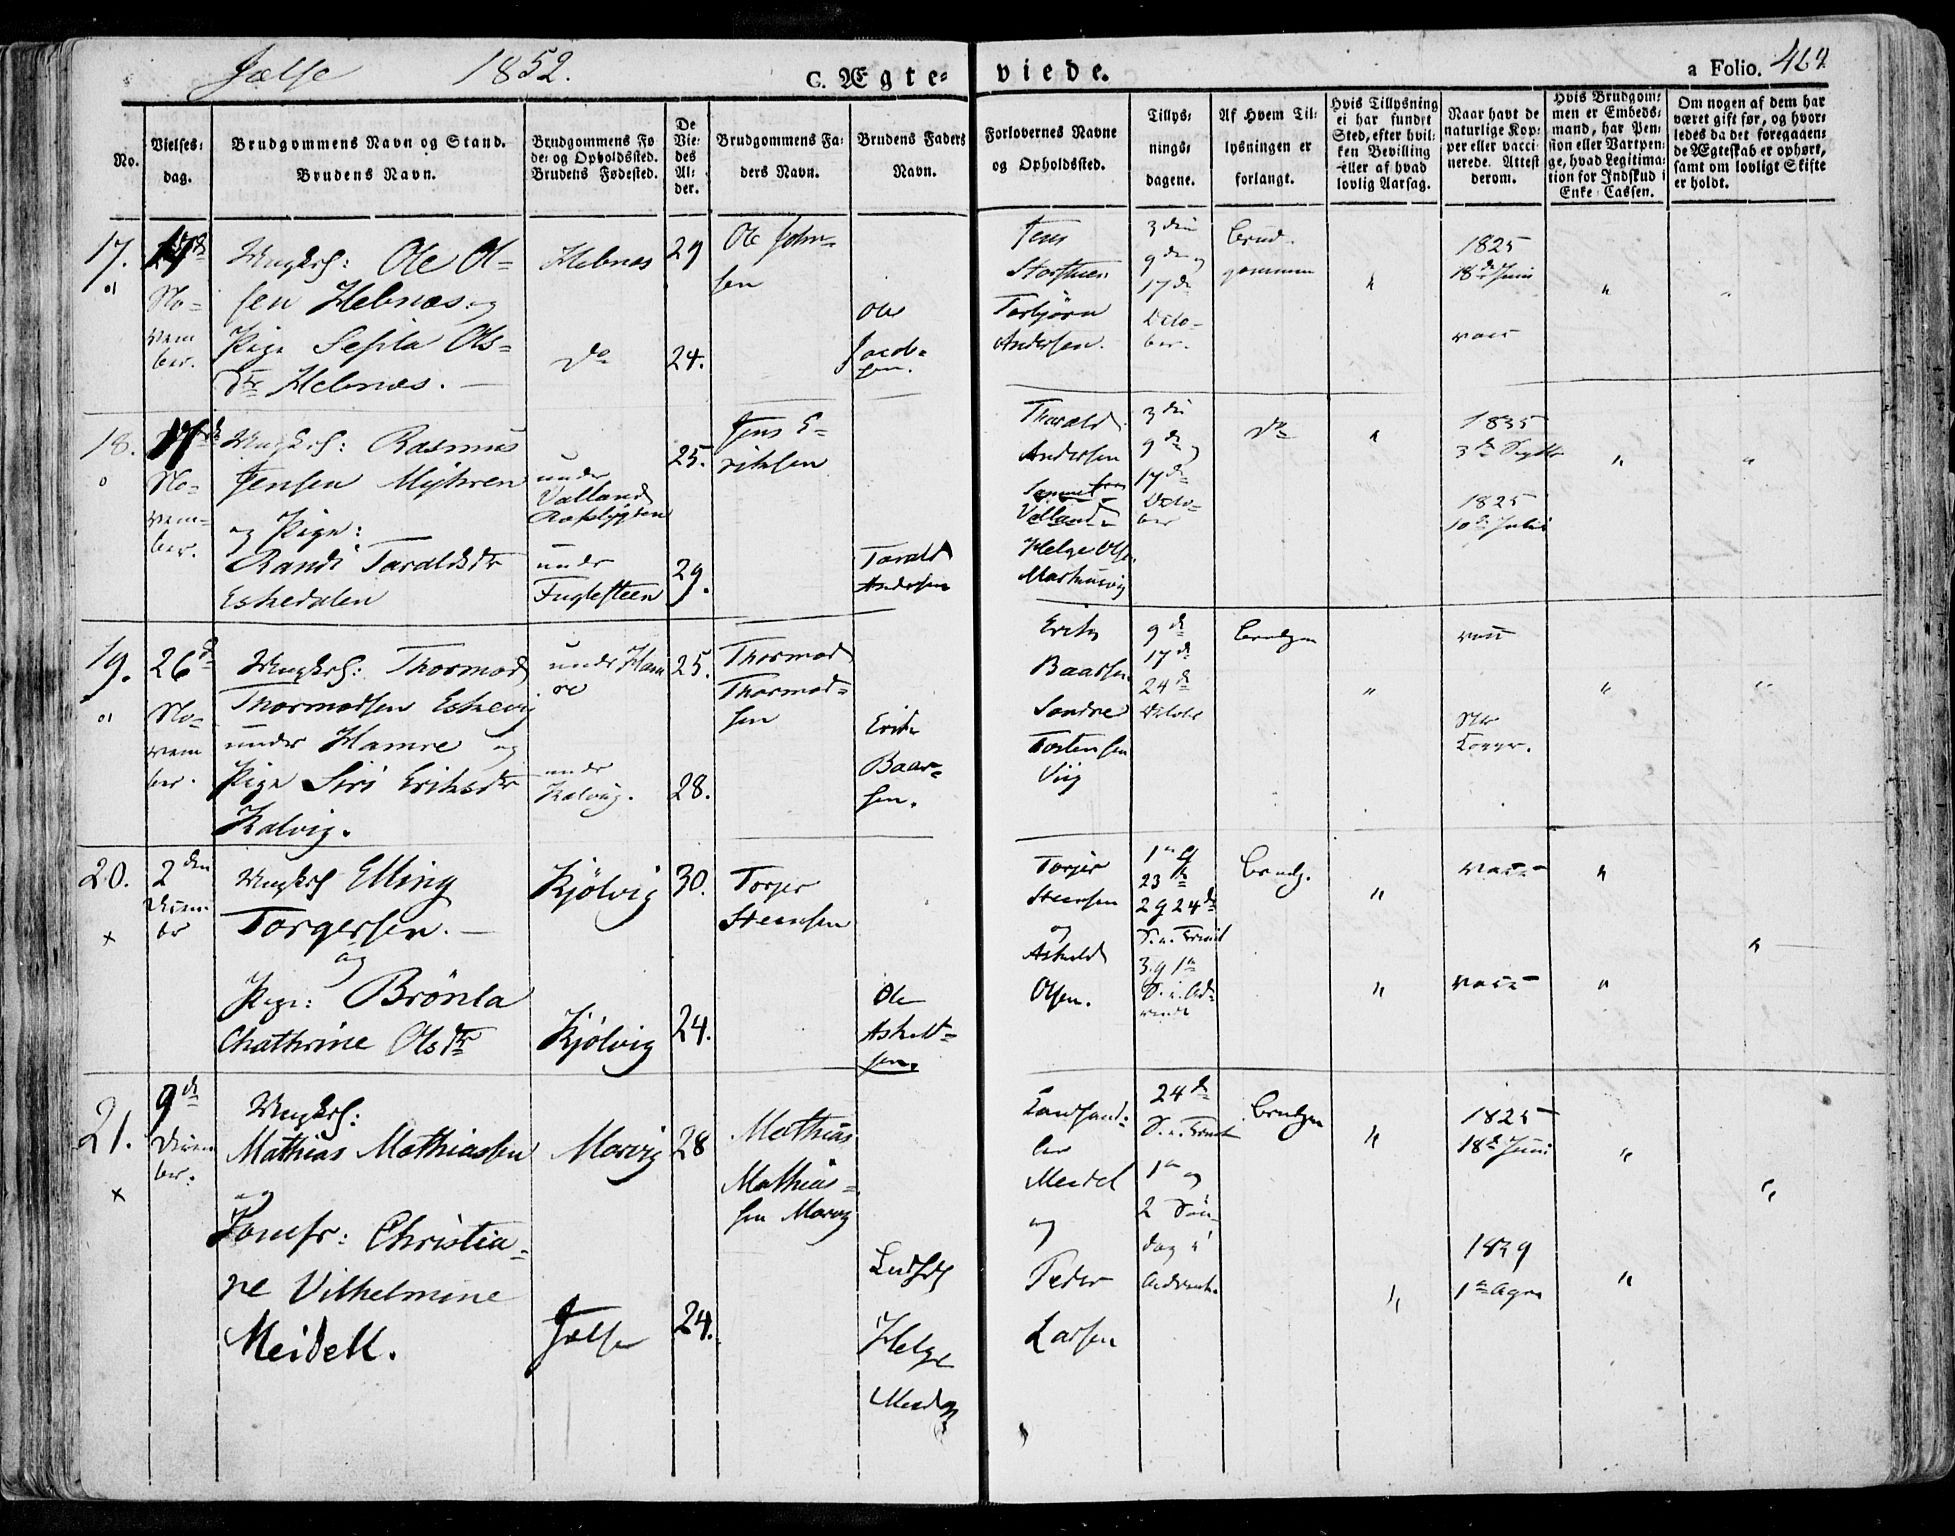 Jælse 1852. C. Ægte-viede. a Folio. 464
No.
Vielses-
dag.
Brudgommens Navn og Stand.
Brudens Navn.
Brudgommens Fø
de- og Opholdssted.
Brudens Fødested.
De
Vie-
des
Al-
der.
Brudgommens Fa-
ders Navn.
Brudens Faders
Navn.
Forlovernes Navne
og Opholdssted.
Tillys-
nings-
dagene.
Af Hvem Til-
lysningen er
forlangt.
Hvis Tillysning
ei har fundet
Sted, efter hvil-
ken Bevilling
eller af hvad
lovlig Aarsag.
Naar havt de
naturlige Kop-
per eller vacci-
nerede. Attest
derom.
Hvis Brudgom-
men er Embeds-
mand, har Pen-
sion eller Vartpen-
ge, hvad Legitima-
tion for Indskud i
Enke-Cassen.
Om nogen af dem har
været gift før, og hvor-
ledes da det foregaaen-
de Ægteskab er ophørt,
samt om lovligt Skifte
er holdt.
17.
No-
vem
ber.
Ungkrl: Ole Ol-
sen Helsnæs og
Pige Ols-
dtr Helsnæs.
Helsnæs
do
29
24.
Ole John-
sen
Ole
Jacob-
sen.
Jens
Torbjørn
Andersen.
3die
9de og
17de
Octo-
ber.
Brud-
gommen
"
1825
18de Juni
vacc
"
"
18.
17de
No-
vem-
ber.
Ungkrl: Rasmus
Jensen Myhren
og Pige:
Randi Taraldsdtr
Eskedalen
under
Valland
under
Fuglesteen
25.
29.
Jens E-
riksen
Tarald
Andersen
Tharald
Andersen
Valland
Helge Olsen
3die
9de og
17de
Octo-
ber
do
"
1835
3de
1825
10de Juli
"
"
19.
26de
No-
vem
ber.
Ungkrl: Thormod
Thormodsen Eskevig
under Hamre og
Pige Siri Eriksdtr
Kalvig.
under Ham
re
under
Kalvig.
25.
28.
Thormod
Thormod-
sen
Erik
Baar-
sen.
Erik
Baarsen
Sondre
Tostensen
Viig
9de
17de
24de
Octobr
Brudgn
"
vacc
"
"
20.
2den
Decem-
br
Ungkrl Elling
Torgersen.
og
Pige: Brønla
Chathrine Olsdtr
Kjølvig
Kjølvig
30.
24.
Torger
Steensen
Ole
Askild-
sen.
Torger
Steensen
og
Askild
Olsen.
1ste og
23de
2 g 24de
S. e. Trinit
3. g 1te
S. i. Ad-
vent
Brudg.
"
"
vacc
vacc
"
"
"
21.
9de
Decem
ber.
Ungkrl:
Mathias Mathiassen
og
Jomfr: Christia-
ne Vilhelmine
Meidell.
Marvig
Jælse
28
24.
Mathias
Mathias-
sen Marvig
Helge
Meidell
Landhand-
ler
Meidel
og
Peder
Larsen
24de
S. e. Trinit
1te og
2 Søn-
dag i
Advent.
Brudgn
"
"
1825
18de Juni
1829
"
"
"